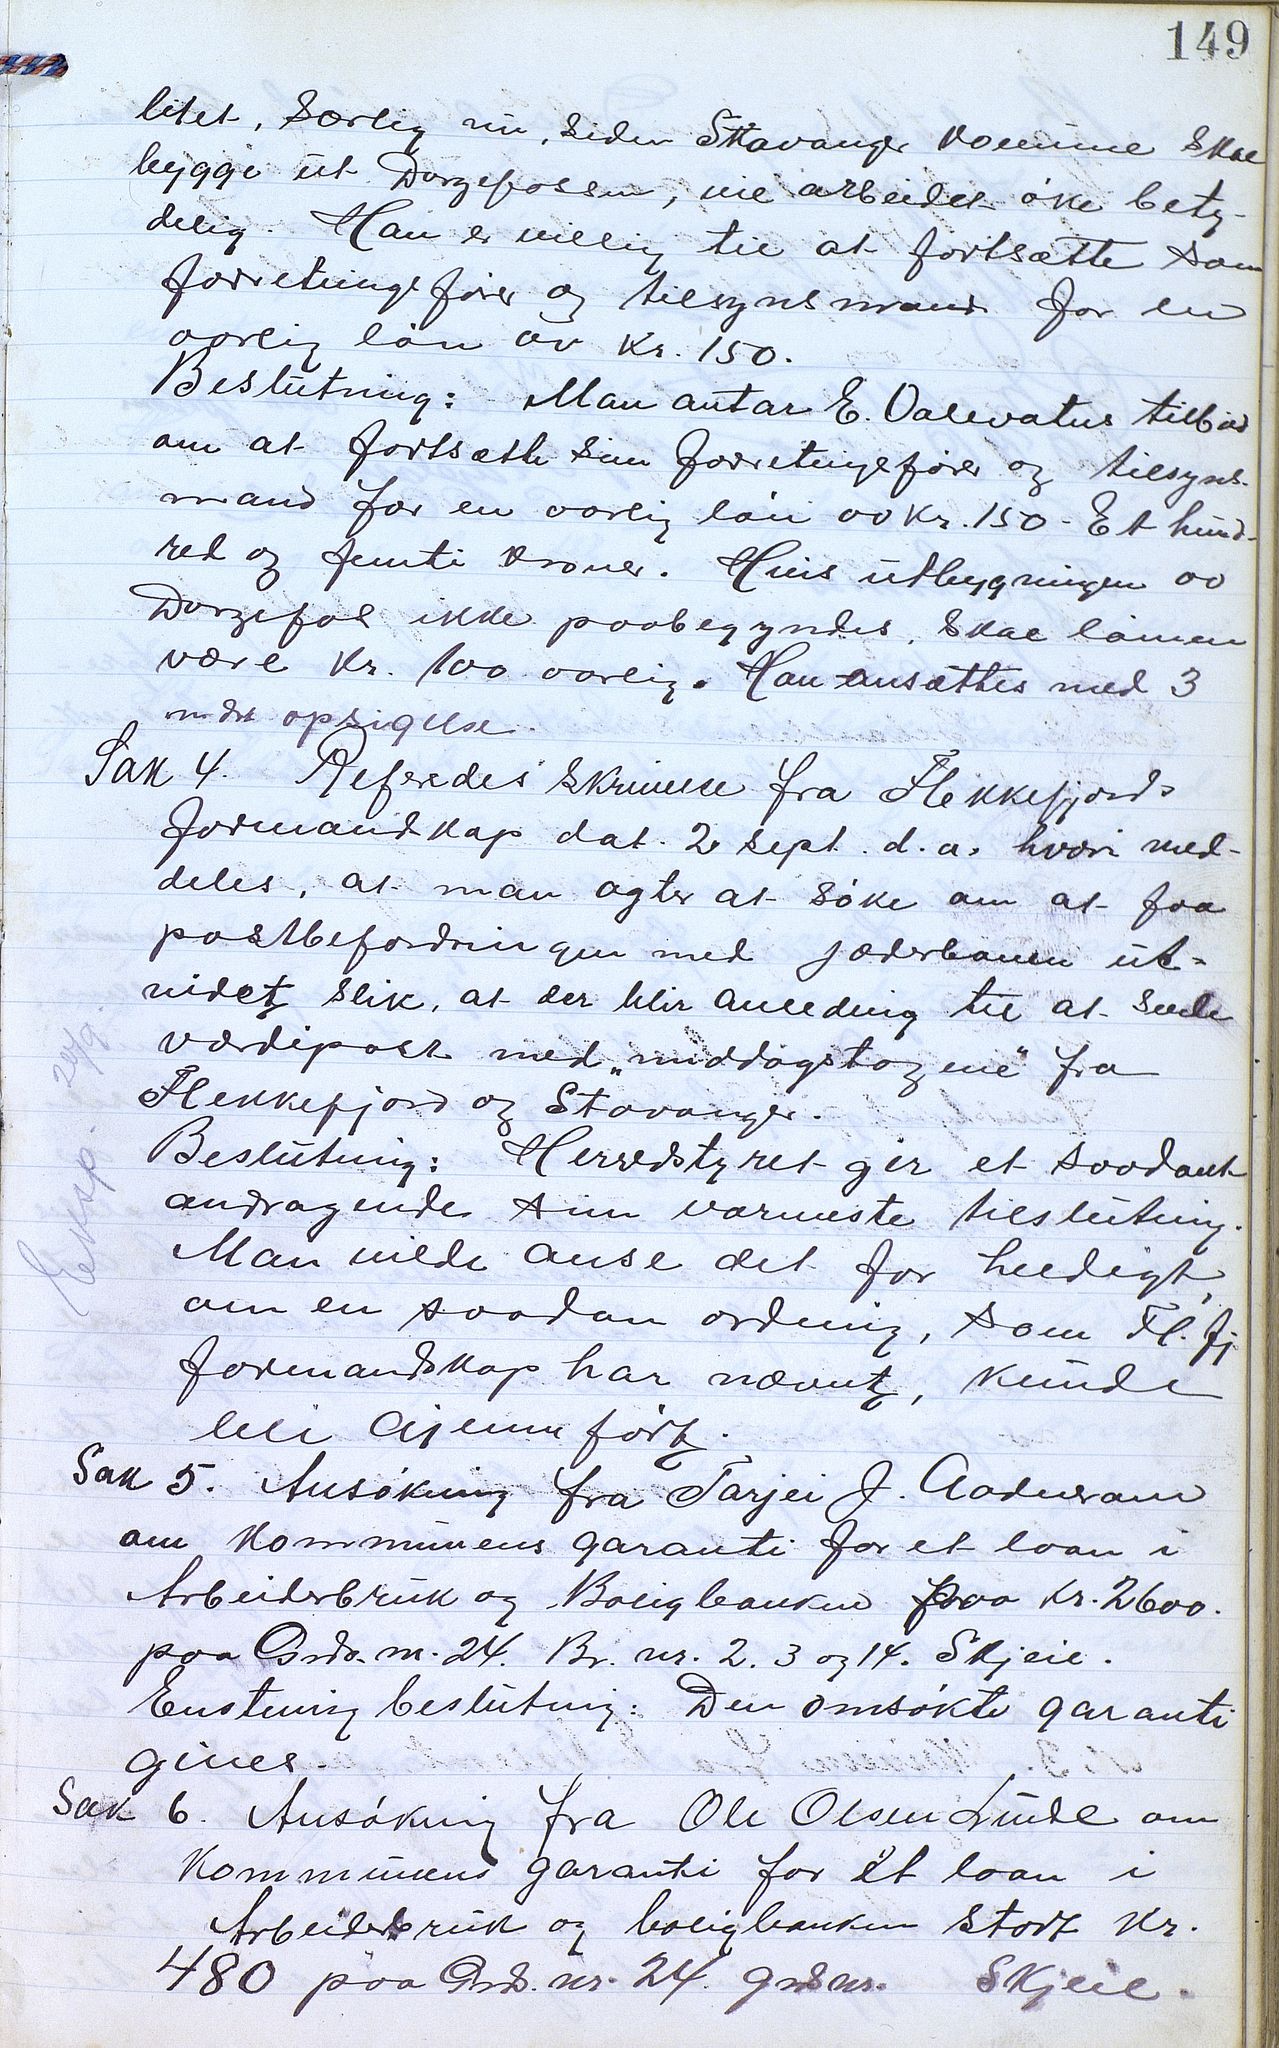 149
litet, særlig nu, siden Stavanger komune skal
bygge ut Dorgefossen, vil arbeidet øke bety-
delig. Han er villig til at fortsætte som
forretningsfører og tilsynsmand for en
aarlig løn av kr. 150.
Beslutning: Man antar E. Valevatns tilbud
om at fortsætte som forretningsfører og tilsyns-
mand for en aarlig løn av kr. 150 - Et hund-
red og femti kroner. Hvis utbygningen av
Dorgefos ikke paabegyndes, skal lønnen
være kr. 100 aarlig. Han ansættes med 3
mdrs opsigelse.
Sak 4. Refereredes skrivelse fra Flekkefjords
formandskap dat. 2 sept. d.a. hvori med-
deles, at man agter at søke om at faa
postbefordringen med Jæderbanen ut-
videt slik, at der blir anledning til at sende
værdipost med "middagstogene" fra
Flekkefjord og Stavanger.
Beslutning: Herredstyret gir et saadant
andragende sin varmeste tilslutning.
Man vilde anse det for heldigt,
om en saadan ordning, som Fl. fj
formandskap har nævnt, kunde
bli gjennemført.
Eksp. 24/9.
Sak 5. Ansøkning fra Tarjei J. Aadneram
om kommunens garanti for et laan i
Arbeiderbruk og Boligbanken paa kr. 2600.
paa Grds. nr. 24. Br. nr. 2. 3 og 14. Skjeie.
Enstemig beslutning: Den omsøkte garanti
gives.
Sak 6. Ansøkning fra Ole Olsen Linde om
kommunens garanti for et laan i
Arbeiderbruk og boligbanken stort kr.
480 paa Grds. nr. 24. grds nr. Skjeie.